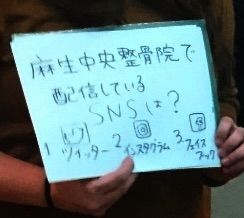 麻生中央整骨院で
配信している
SNSは？
1 ツイッター 2 インスタグラム 3 フェイス
ブック